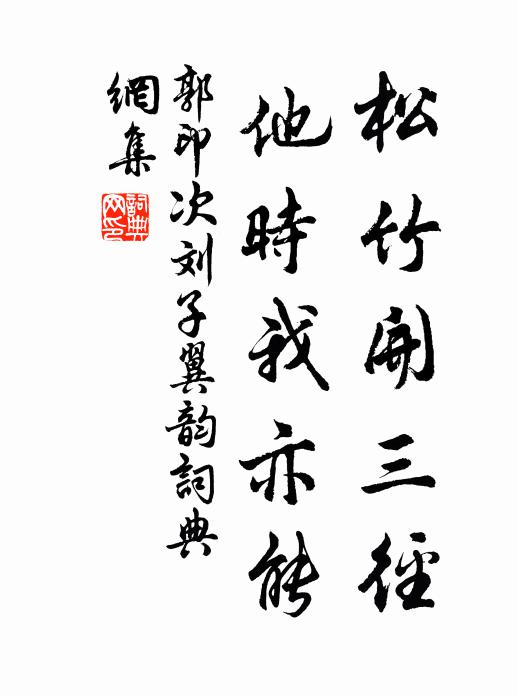 松竹開三徑
他時我亦能
郭印次刘子翼韵詞典
網集
詞典
网印